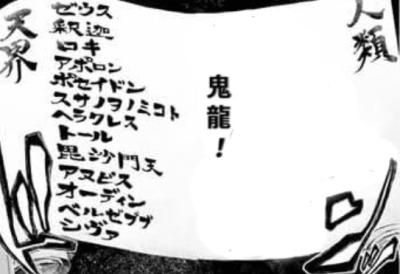 人類
鬼龍！
天界
ゼウス
釈迦
ロキ
アポロン
ポセイドン
スサノヲノミコト
ヘラクレス
トール
毘沙門天
アヌビス
オーディン
ベルゼブブ
シヴァ